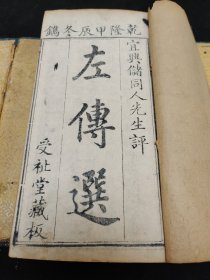 乾隆甲辰冬鐫
宜興儲同人先生評
左傳選
受祉堂藏板